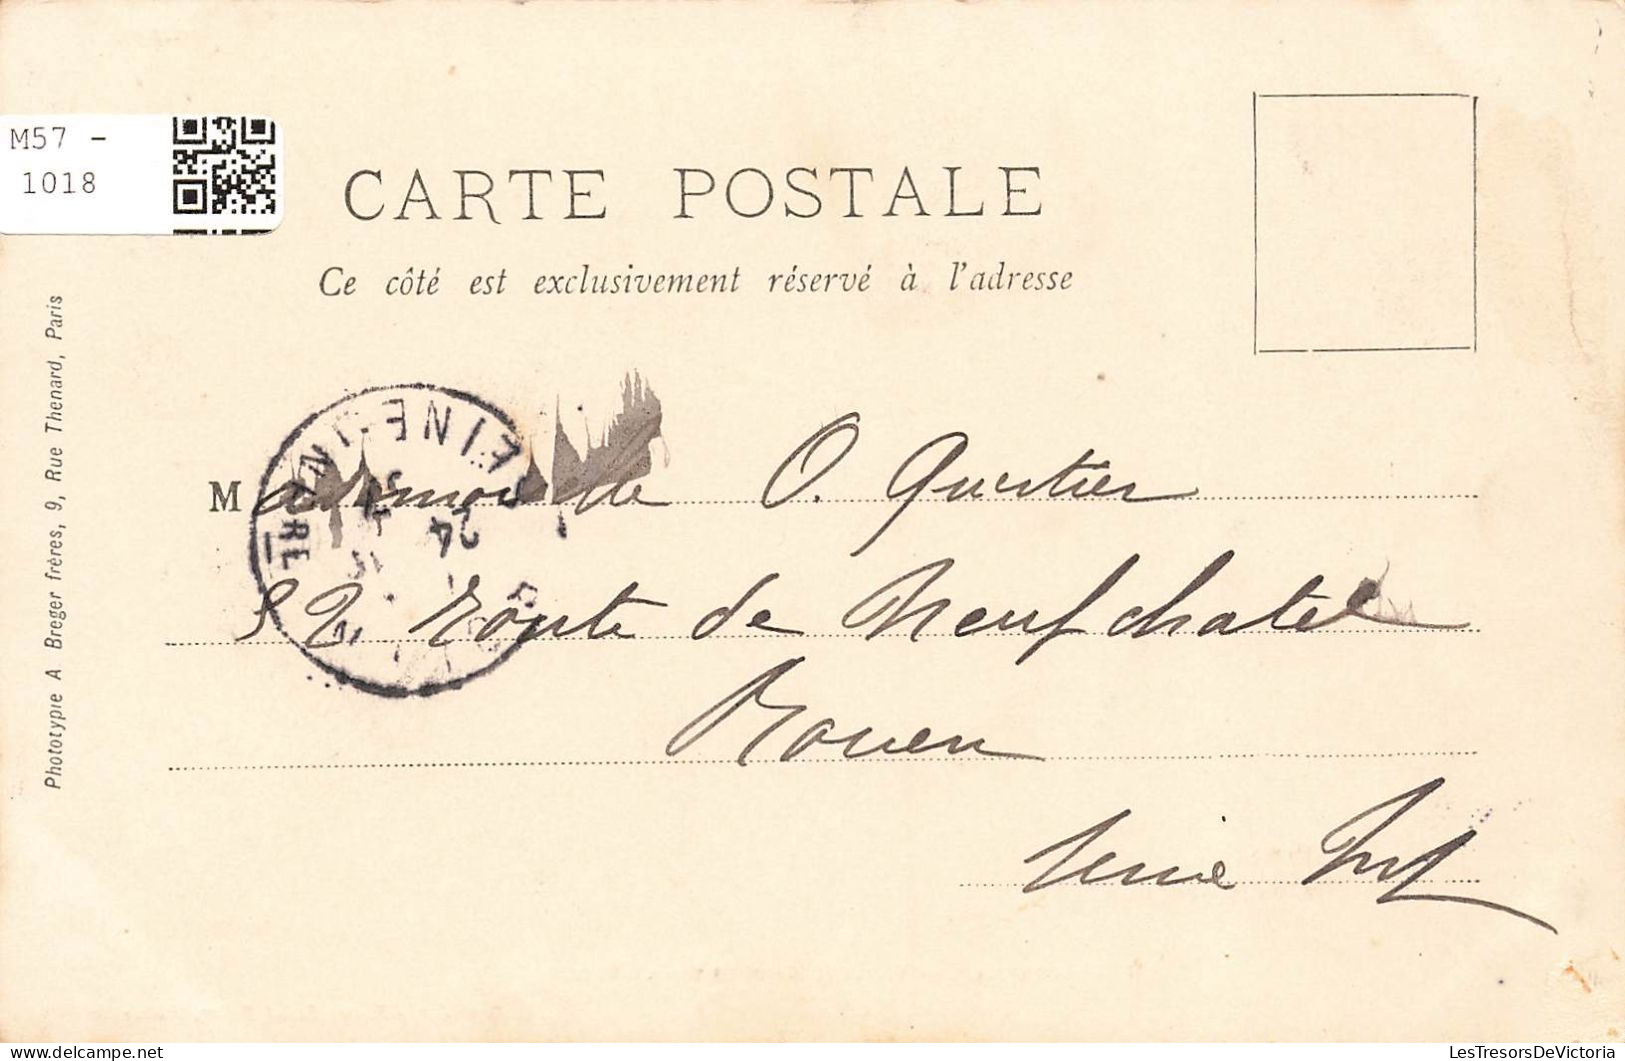 M57 -
1018
CARTE POSTALE
Ce côté est exclusivement réservé à l'adresse
Phototypie A Breger frères, 9, Rue Thenard, Paris
Mademoiselle O. Quertier
52 route de Neufchatel
Rouen
Seine Inf
SEINE-INFRE
24
LesTresorsDeVictoria